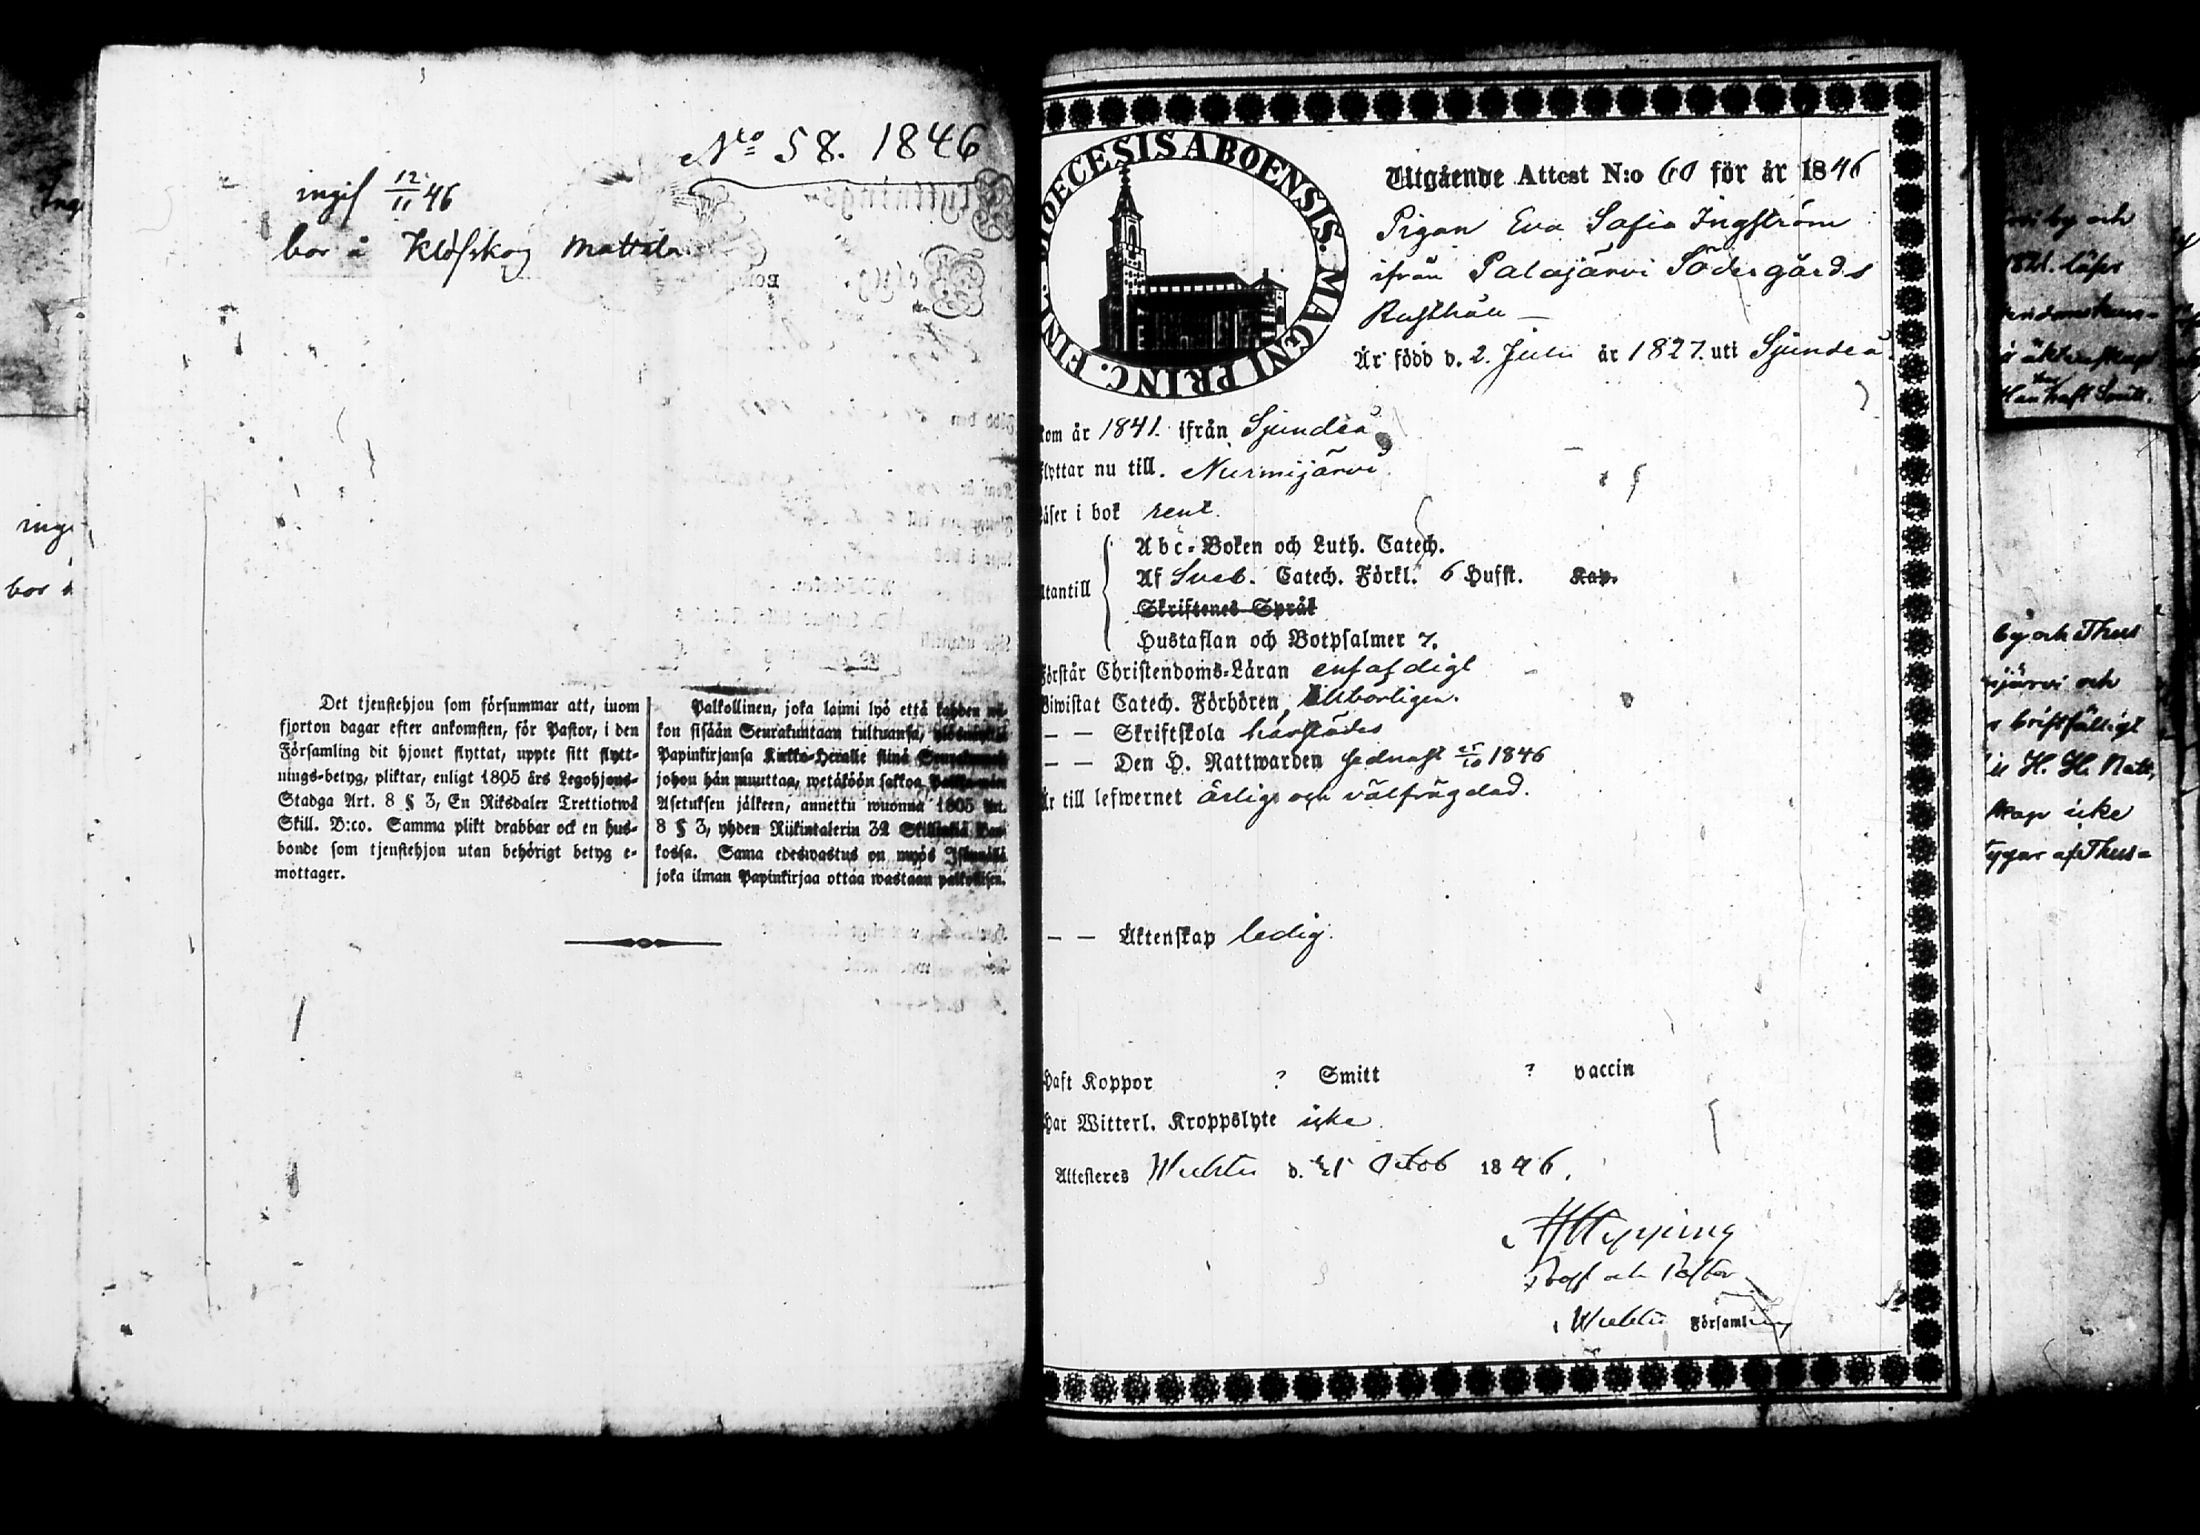 No 58. 1846
ingif 12/11 46
bor å Klöfskog Mattila
Det tjenstehjon som försummar att, inom
fjorton dagar efter ankomsten, för Pastor, i den
Församling dit hjonet flyttat, uppte sitt flytt-
nings-betyg, pliktar, enligt 1805 års Legohjons-
Stadga Art. 8 § 3, En Riksdaler Trettiotwå
Skill. B:co. Samma plikt drabbar ock en hus-
bonde som tjenstehjon utan behörigt betyg e-
mottager.
Palkollinen, joka laimi lyö että kahden wii-
kon sisään Seurakuntaan tultuansa,
Papinkirjansa Kirkko-Herralle siinä Seurakunnas
johon hän muuttaa, wetäköön sakkoa
Asetuksen jälkeen, annettu wuonna 1805 Art.
8 § 3, yhden Riikintalerin 32 Skillinkiä Ban-
kossa. Sama edeswastus on myös Isännällä
joka ilman Papinkirjaa ottaa wastaan palkollisen.
DIOECESIS ABOENSIS. MAGNI PRINC. FINL.
Utgående Attest N:o 60 för år 1846
Pigan Eva Safia Ingström
ifrån Palajärvi Södergårds
Rusthåll —
Är född d. 2. Julii år 1827. uti Sjundeå
kom år 1841. ifrån Sjundeå
flyttar nu till. Nurmijärvi
läser i bok rent.
Utantill
Abc-Boken och Luth. Catech.
Af Sveb. Catech. Förkl. 6 Hufst. Kap.
Skriftenes Språk
Hustaflan och Botpsalmer 7.
Förstår Christendoms-Läran enfaldigt
Biwistat Catech. Förhören, tillbörligen.
— — Skriftskola härstädes
— — Den H. Nattwarden sednast 25/10 1846
Är till lefwernet ärlig och välfrägdad.
— — Äktenskap ledig.
Haft Koppor ? Smitt ? vaccin
Har Witterl. Kroppslyte icke.
Attesteres Wichtis d. Octob 1846.
Prost och Pastor
i Wichtis Församling
by och Thus
järvi och
H. H. Natt,
skap icke